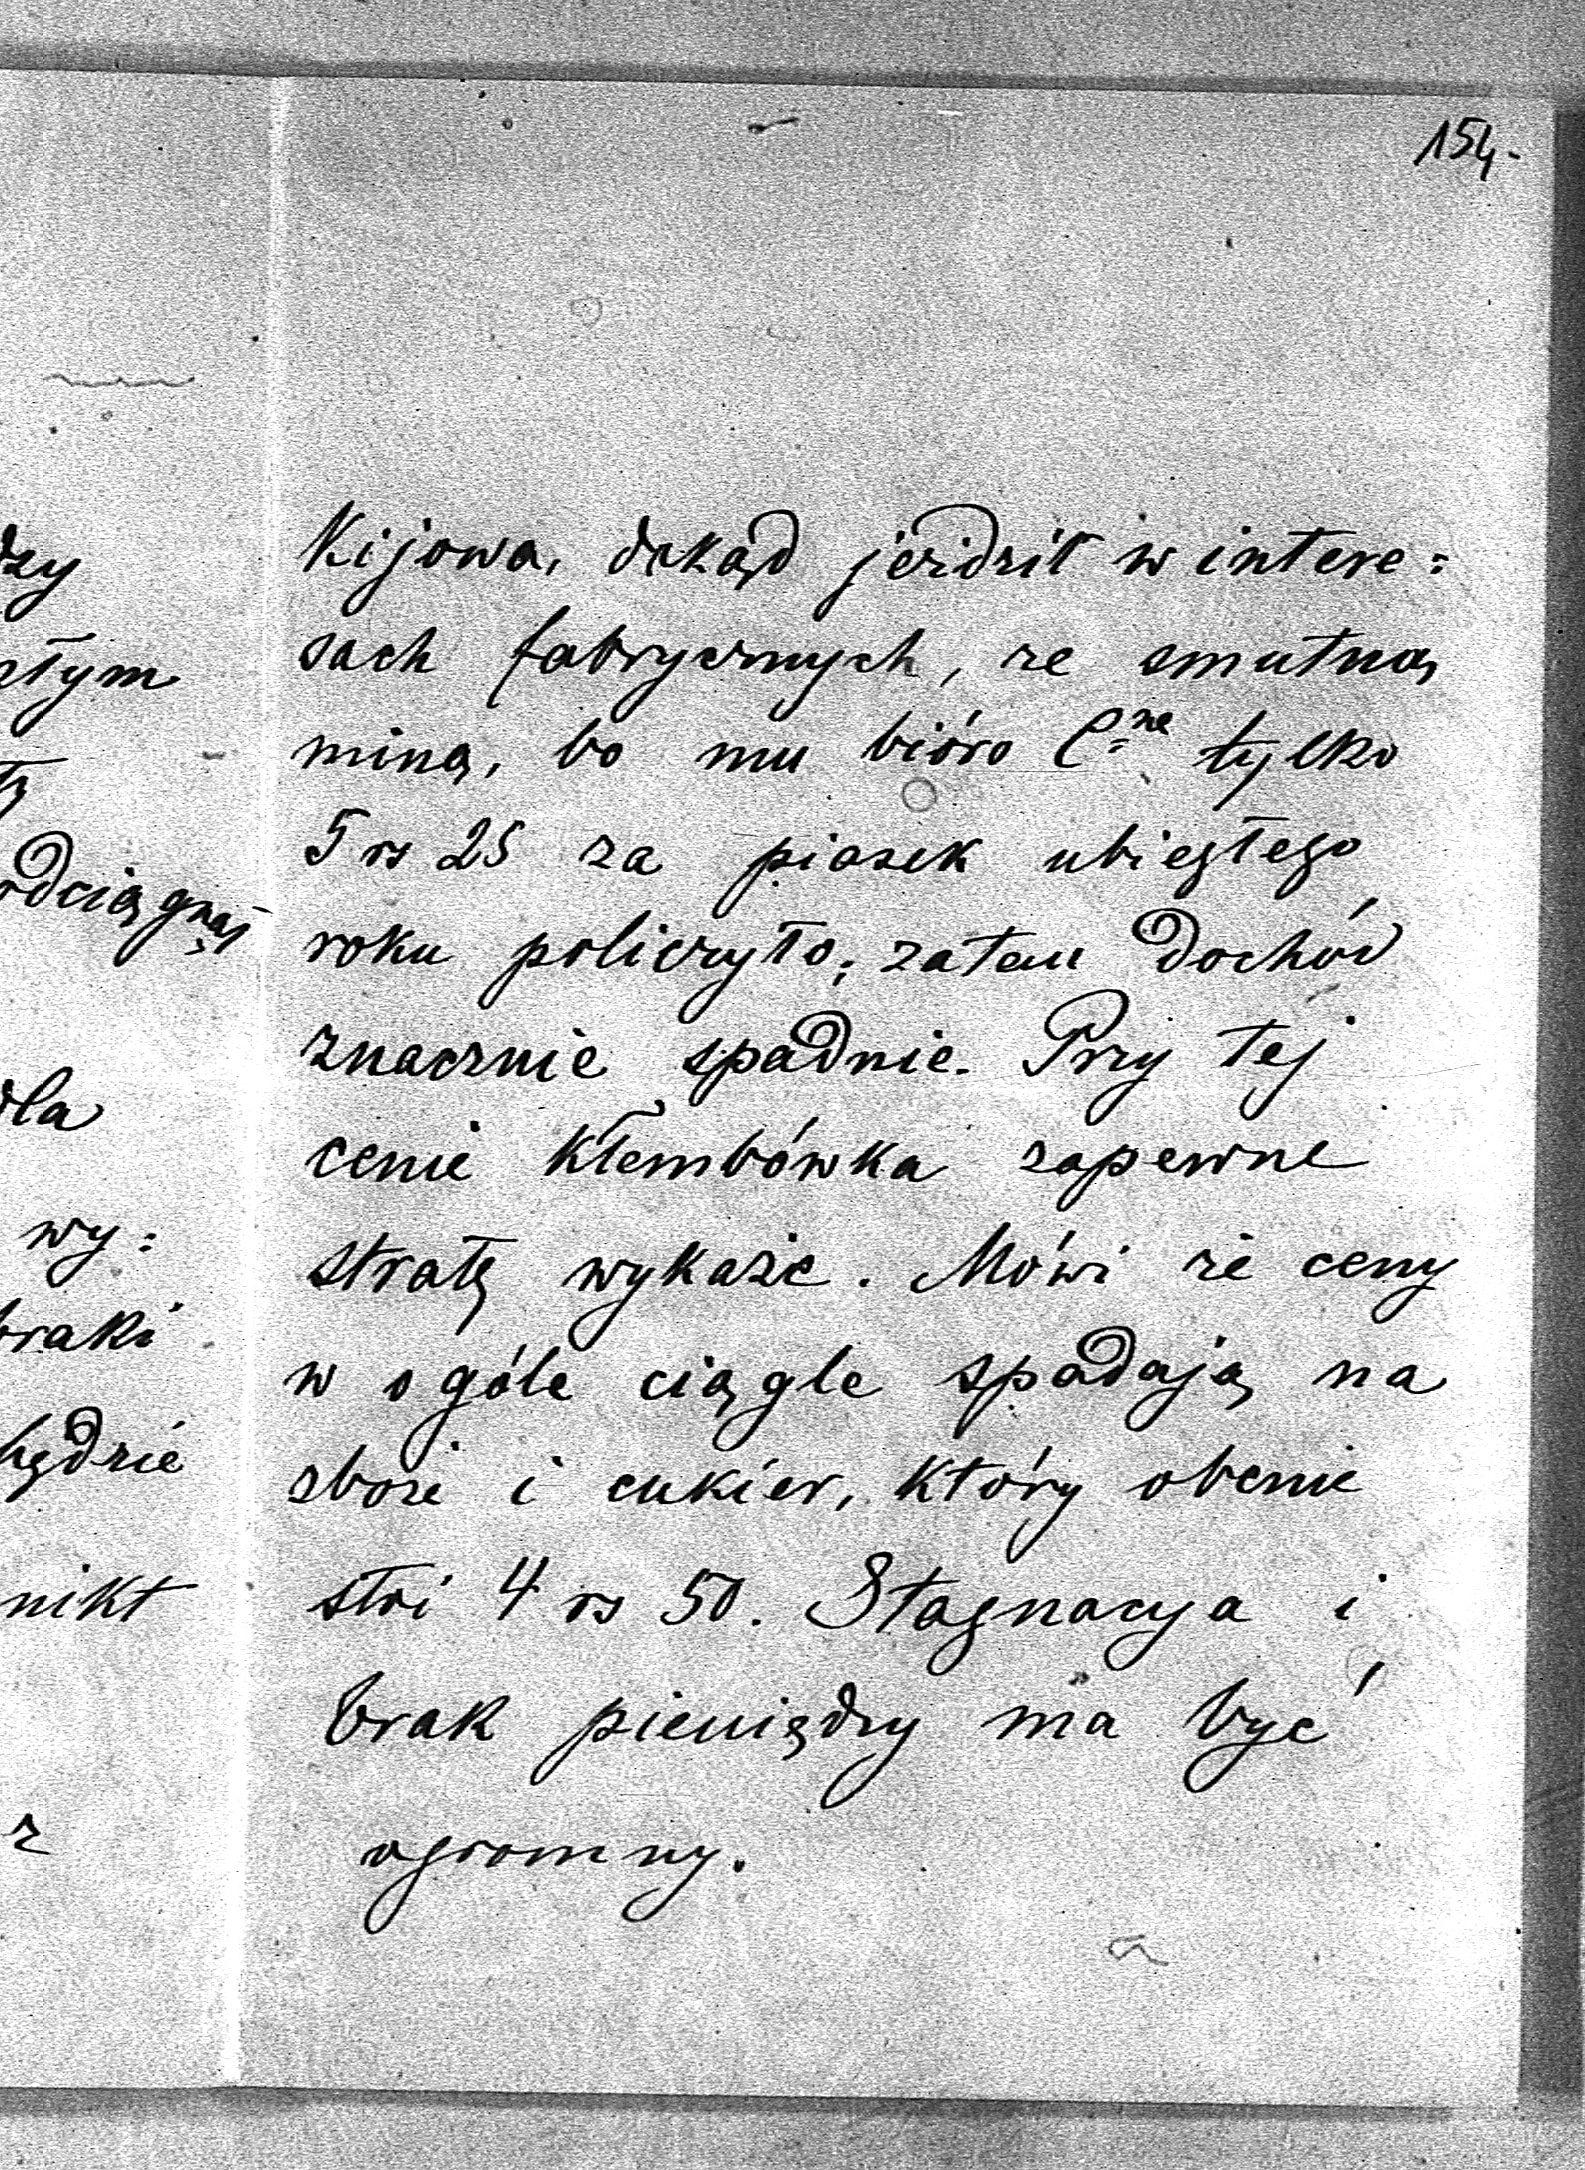 154.
dzy
łym
tę
odciągnąć
dla
wy:
braki
będzie
nikt
z
Kijowa, dokąd jeździł w intere:
sach fabrycznych, ze smutną
miną, bo mu bióro C.ne tylko
5 rs 25 za piasek ubiegłego
roku policzyło; zatem dochód
znacznie spadnie. Przy téj
cenie Kłembówka zapewne
stratę wykaże. Mówi że ceny
w ogóle ciągle spadają na
zboże i cukier, który obenie
stoi 4 rs 50. Stagnacya i
brak pieniędzy ma być
ogromny.